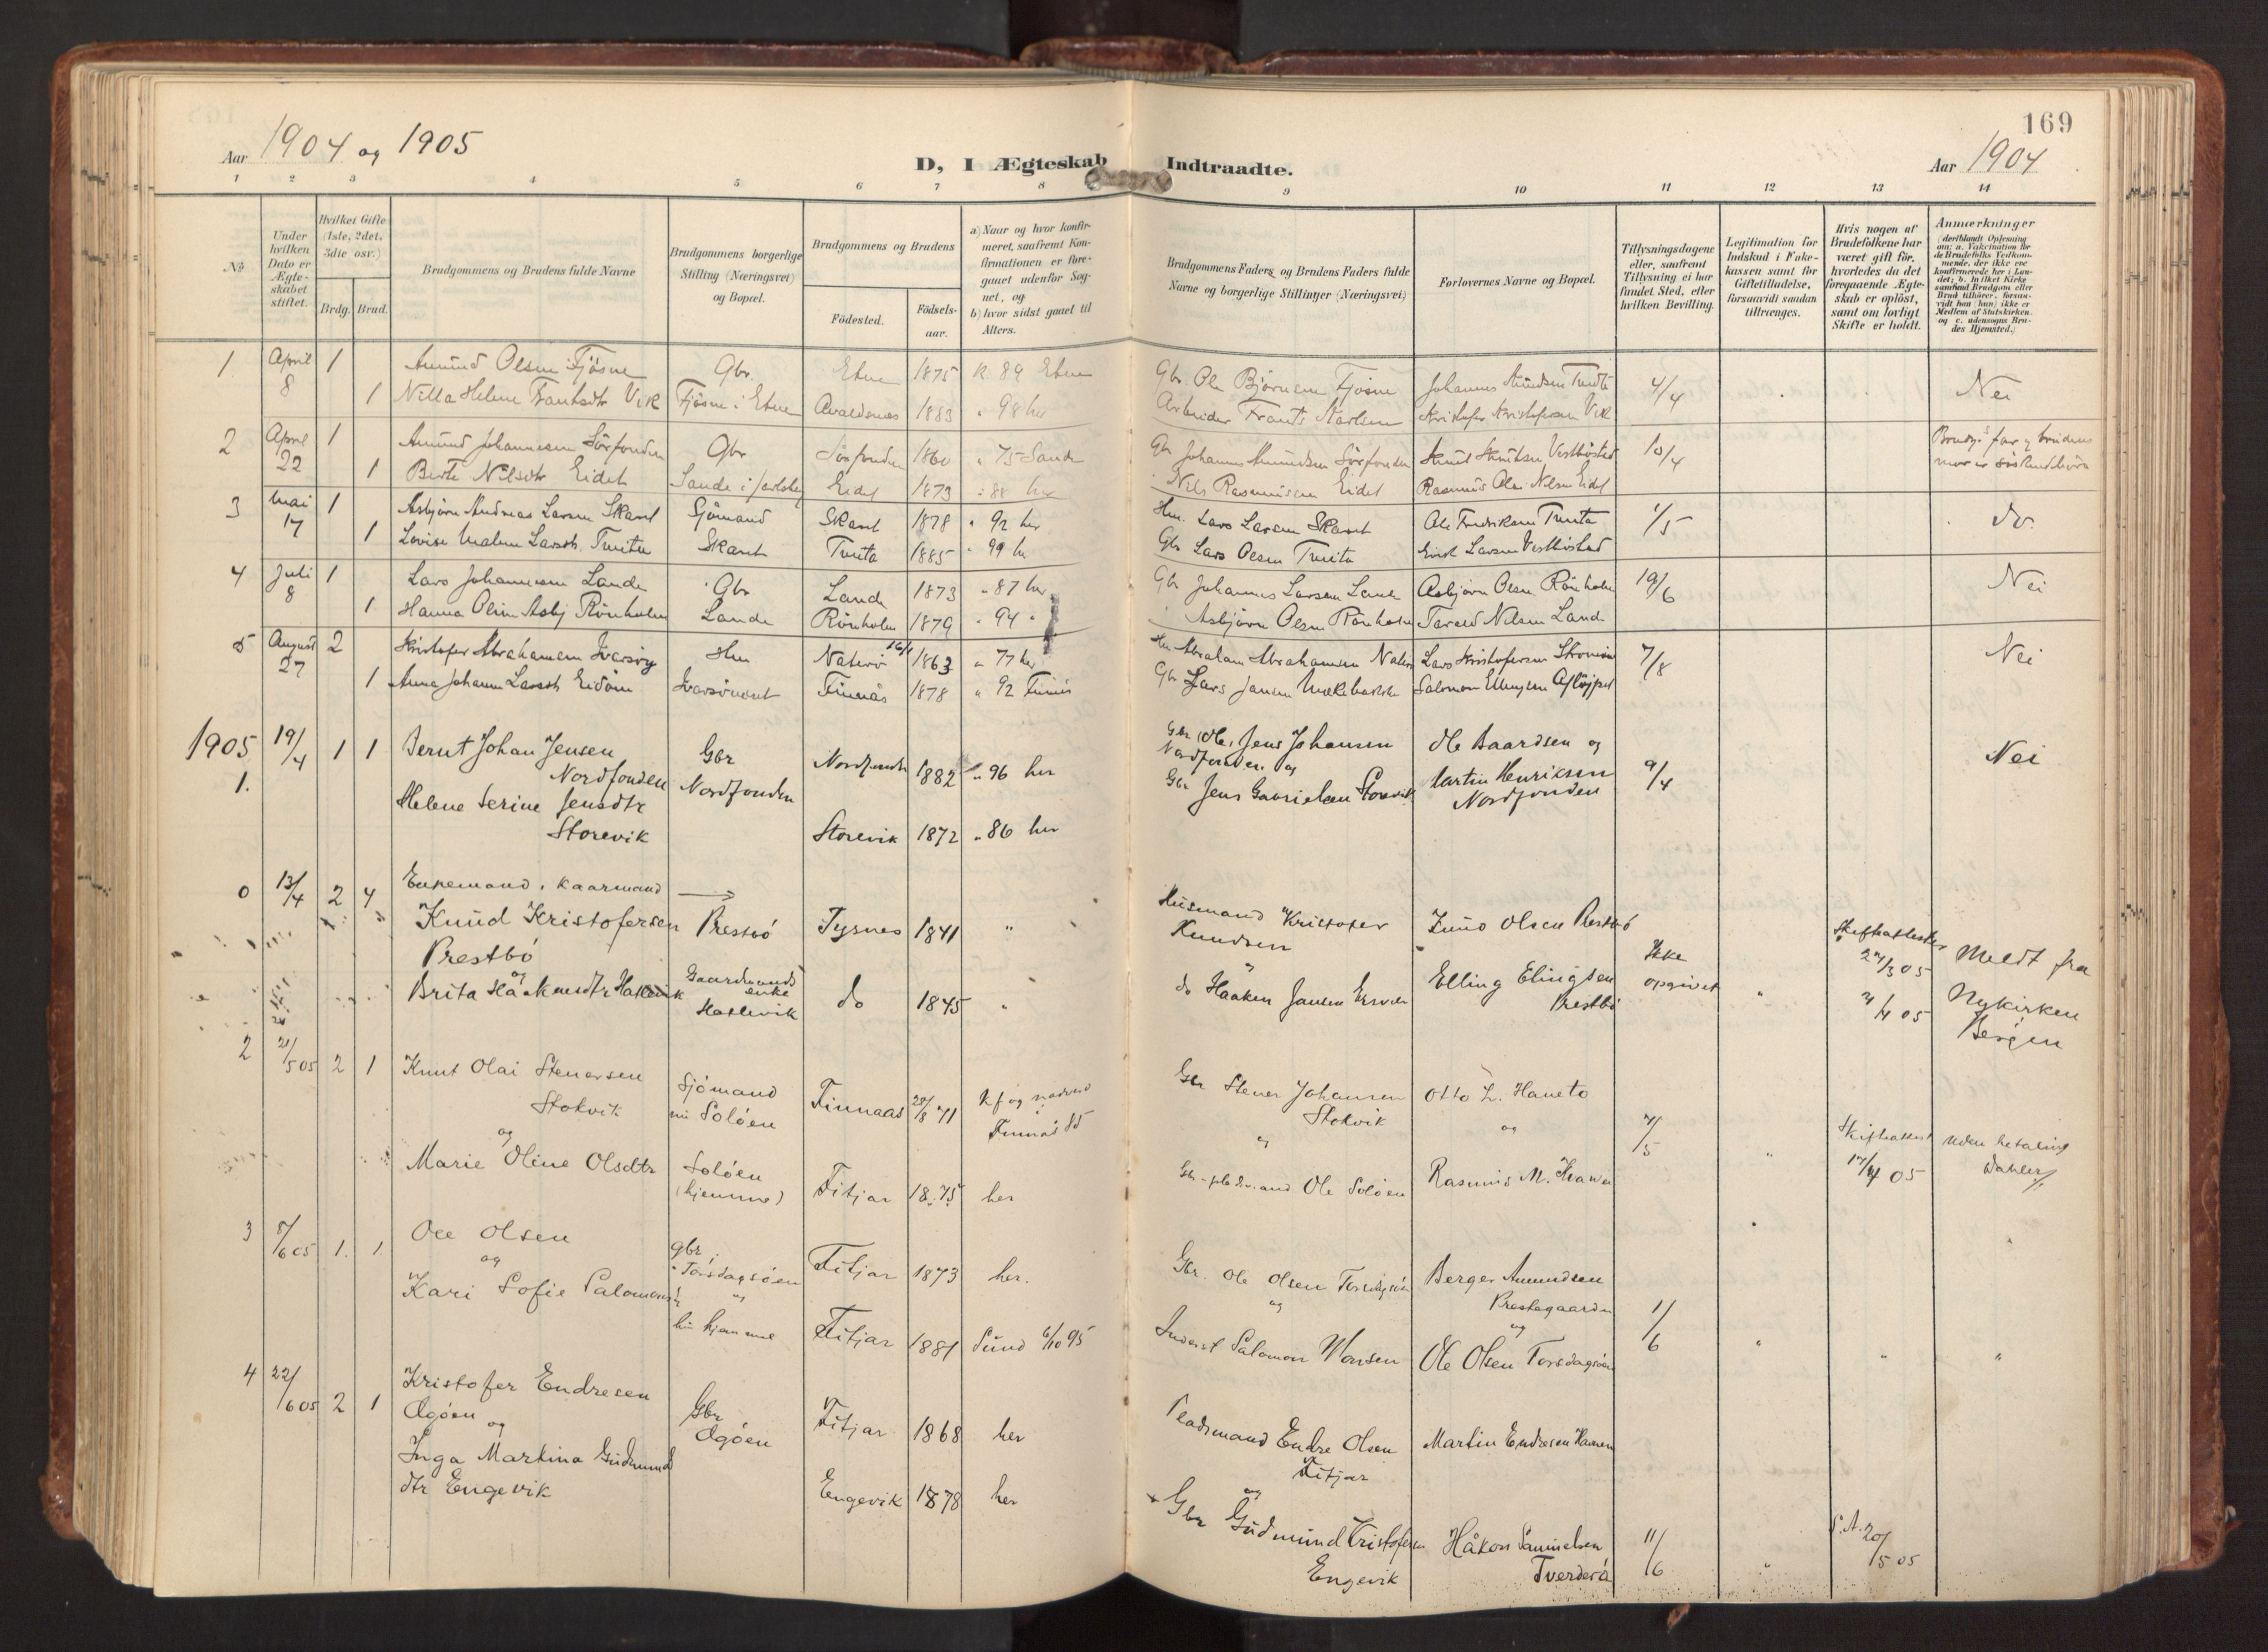 169
Aar 1904 og 1905
D, I Ægteskab Indtraadte.
Aar 1904
1 2 3 4 5 6 7 8 9 10 11 12 13 14
No
Under hvilken Dato er Ægteskabet stiftet.
Hvilket Gifte (1ste, 2det, 3die osv.)
Brdg. Brud.
Brudgommens og Brudens fulde Navne
Brudgommens borgerlige Stilling (Næringsvei) og Bopæl.
Brudgommens og Brudens
Fødested. Fødselsaar.
a) Naar og hvor konfirmeret, saafremt Konfirmationen er foregaaet udenfor Sognet, og
b) hvor sidst gaaet til Alters.
Brudgommens Faders og Brudens Faders fulde Navne og borgerlige Stillinger (Næringsvei)
Forlovernes Navne og Bopæl.
Tillysningsdagene eller, saafremt Tillysning ei har fundet Sted, efter hvilken Bevilling.
Legitimation for Indskud i Enkekassen samt for Giftetilladelse, forsaavidt saadan tiltrænges.
Hvis nogen af Brudefolkene har været gift før, hvorledes da det foregaaende Ægteskab er opløst, samt om lovligt Skifte er holdt.
Anmærkninger
1. April 8 1 Amund Olsen Fjøsne Gbr. Etne 1875 K. 89 Etne Gbr. Ole Bjørnsen Fjøsne Johannes Amundsen Tveita 4/4 Nei
1 Nilla Helene Frantsdtr Vik Fjøsne i Etne Avaldsnes 1883 " 98 her Arbeider Frants Karlsen Kristofer Kristofersen Vik
2 April 22 1 Amund Johannesen Sörfonden Gbr Sörfonden 1860 " 75 Sande Gbr Johannes Amundsen Sörfonden Knut Knutsen Vestbøstad 10/4 Brudg.s far og brudens
1 Berte Nilsdtr Eidet Sande i Jarlsberg Eidet 1873 " 88 her " Nils Rasmussen Eidet Rasmus Olai Nilsen Eidet mor er söskendebörn
3 Mai 17 1 Asbjørn Andreas Larsen Skaret Sjömand Skaret 1878 " 92 her Hm. Lars Larsen Skaret Ole Fredriksen Tveita 1/5 do.
1 Lovise Malene Larsdtr. Tveita Skaret Tveita 1885 " 99 her Gbr Lars Olsen Tveita Erik Larsen Vestbøstad
4 Juli 8 1 Lars Johannesen Lande Gbr Lande 1873 " 87 her Gbr Johannes Larsen Lande Asbjørn Olsen Rönholm 19/6 Nei
1 Hanna Oline Asbj. Rönholm Lande Rönholm 1879 " 94 " " Asbjørn Olsen Rönholm Tarald Nilsen Lande
5 August 27 2 Kristofer Abrahamsen Ivarsöy Hm Naterö 1863 " 77 her Hm Abraham Abrahamsen Naterö Lars Kristofersen 7/8 Nei
1 Anna Johanne Larsdtr Eidöen Finnås 1878 " 92 Finnås Gbr Lars Jansen Salomon Ellingsen
1905 19/4 1 1 Bernt Johan Jensen Gbr Nordfonden 1882 " 96 her Gbr Jens Johansen Ole Baardsen og Nei
1. Nordfonden Nordfonden Nordfonden og Martin Henriksen 9/4
Helene Serine Jensdtr Gbr Jens Gabrielsen Storevik Nordfonden
Storevik Storevik 1872 " 86 her
0 13/4 2 4 Enkemand, Kaarmand
Knud Kristofersen Prestbö Tysnes 1841 " Husmand Kristofer Olsen Prestbö
Prestbö Knudsen Ikke Skifteattester Meldt fra
og Gaardmands enke og opgivet " 27/3 05
Brita Haakensdtr Hatlevik Hatlevik do 1845 " do Haaken Jansen Elling Elingsen 4/4 05 Nykirken
Prestbö Bergen
2 21/5 05 2 1 Knut Olai Stenersen Sjömand Finnaas 20/8 71 Kf og nadverd Gbr Stener Johansen Otto L. Haneto
Stokvik nu Solöen Finnås 85 Stokvik og 7/5 Skifteattest uden betaling
og og " 17/4 05
Marie Oline Olsdtr Solöen (hjemme) Fitjar 1875 her Ole Solöen Rasmus M.
3 8/6 05 1. 1. Ole Olsen gbr. i Torsdagsöen Fitjar 1873 her. Gbr. Ole Olsen Torsdagsöen Berger Amundsen
og og og Prestegaarden 11/6
Kari Sofie Salomonsdtr hun hjemme Fitjar 1881 Sund 6/10 95 Inderst Salomon Monsen og
Ole Olsen Torsdagsöen " " "
4 22/6 05 2 1 Kristofer Endresen Gbr Fitjar 1868 her Pladsmand Endre Olsen Martin Endresen
Øgöen og Øgöen Fitjar
Inga Martina Gudmunds og
dtr Engevik Engevik 1878 her Gbr Gudmund Kristofersen Håkon Samuelsen 11/6 " S.A. 20/5 05
Engevik Tverderå